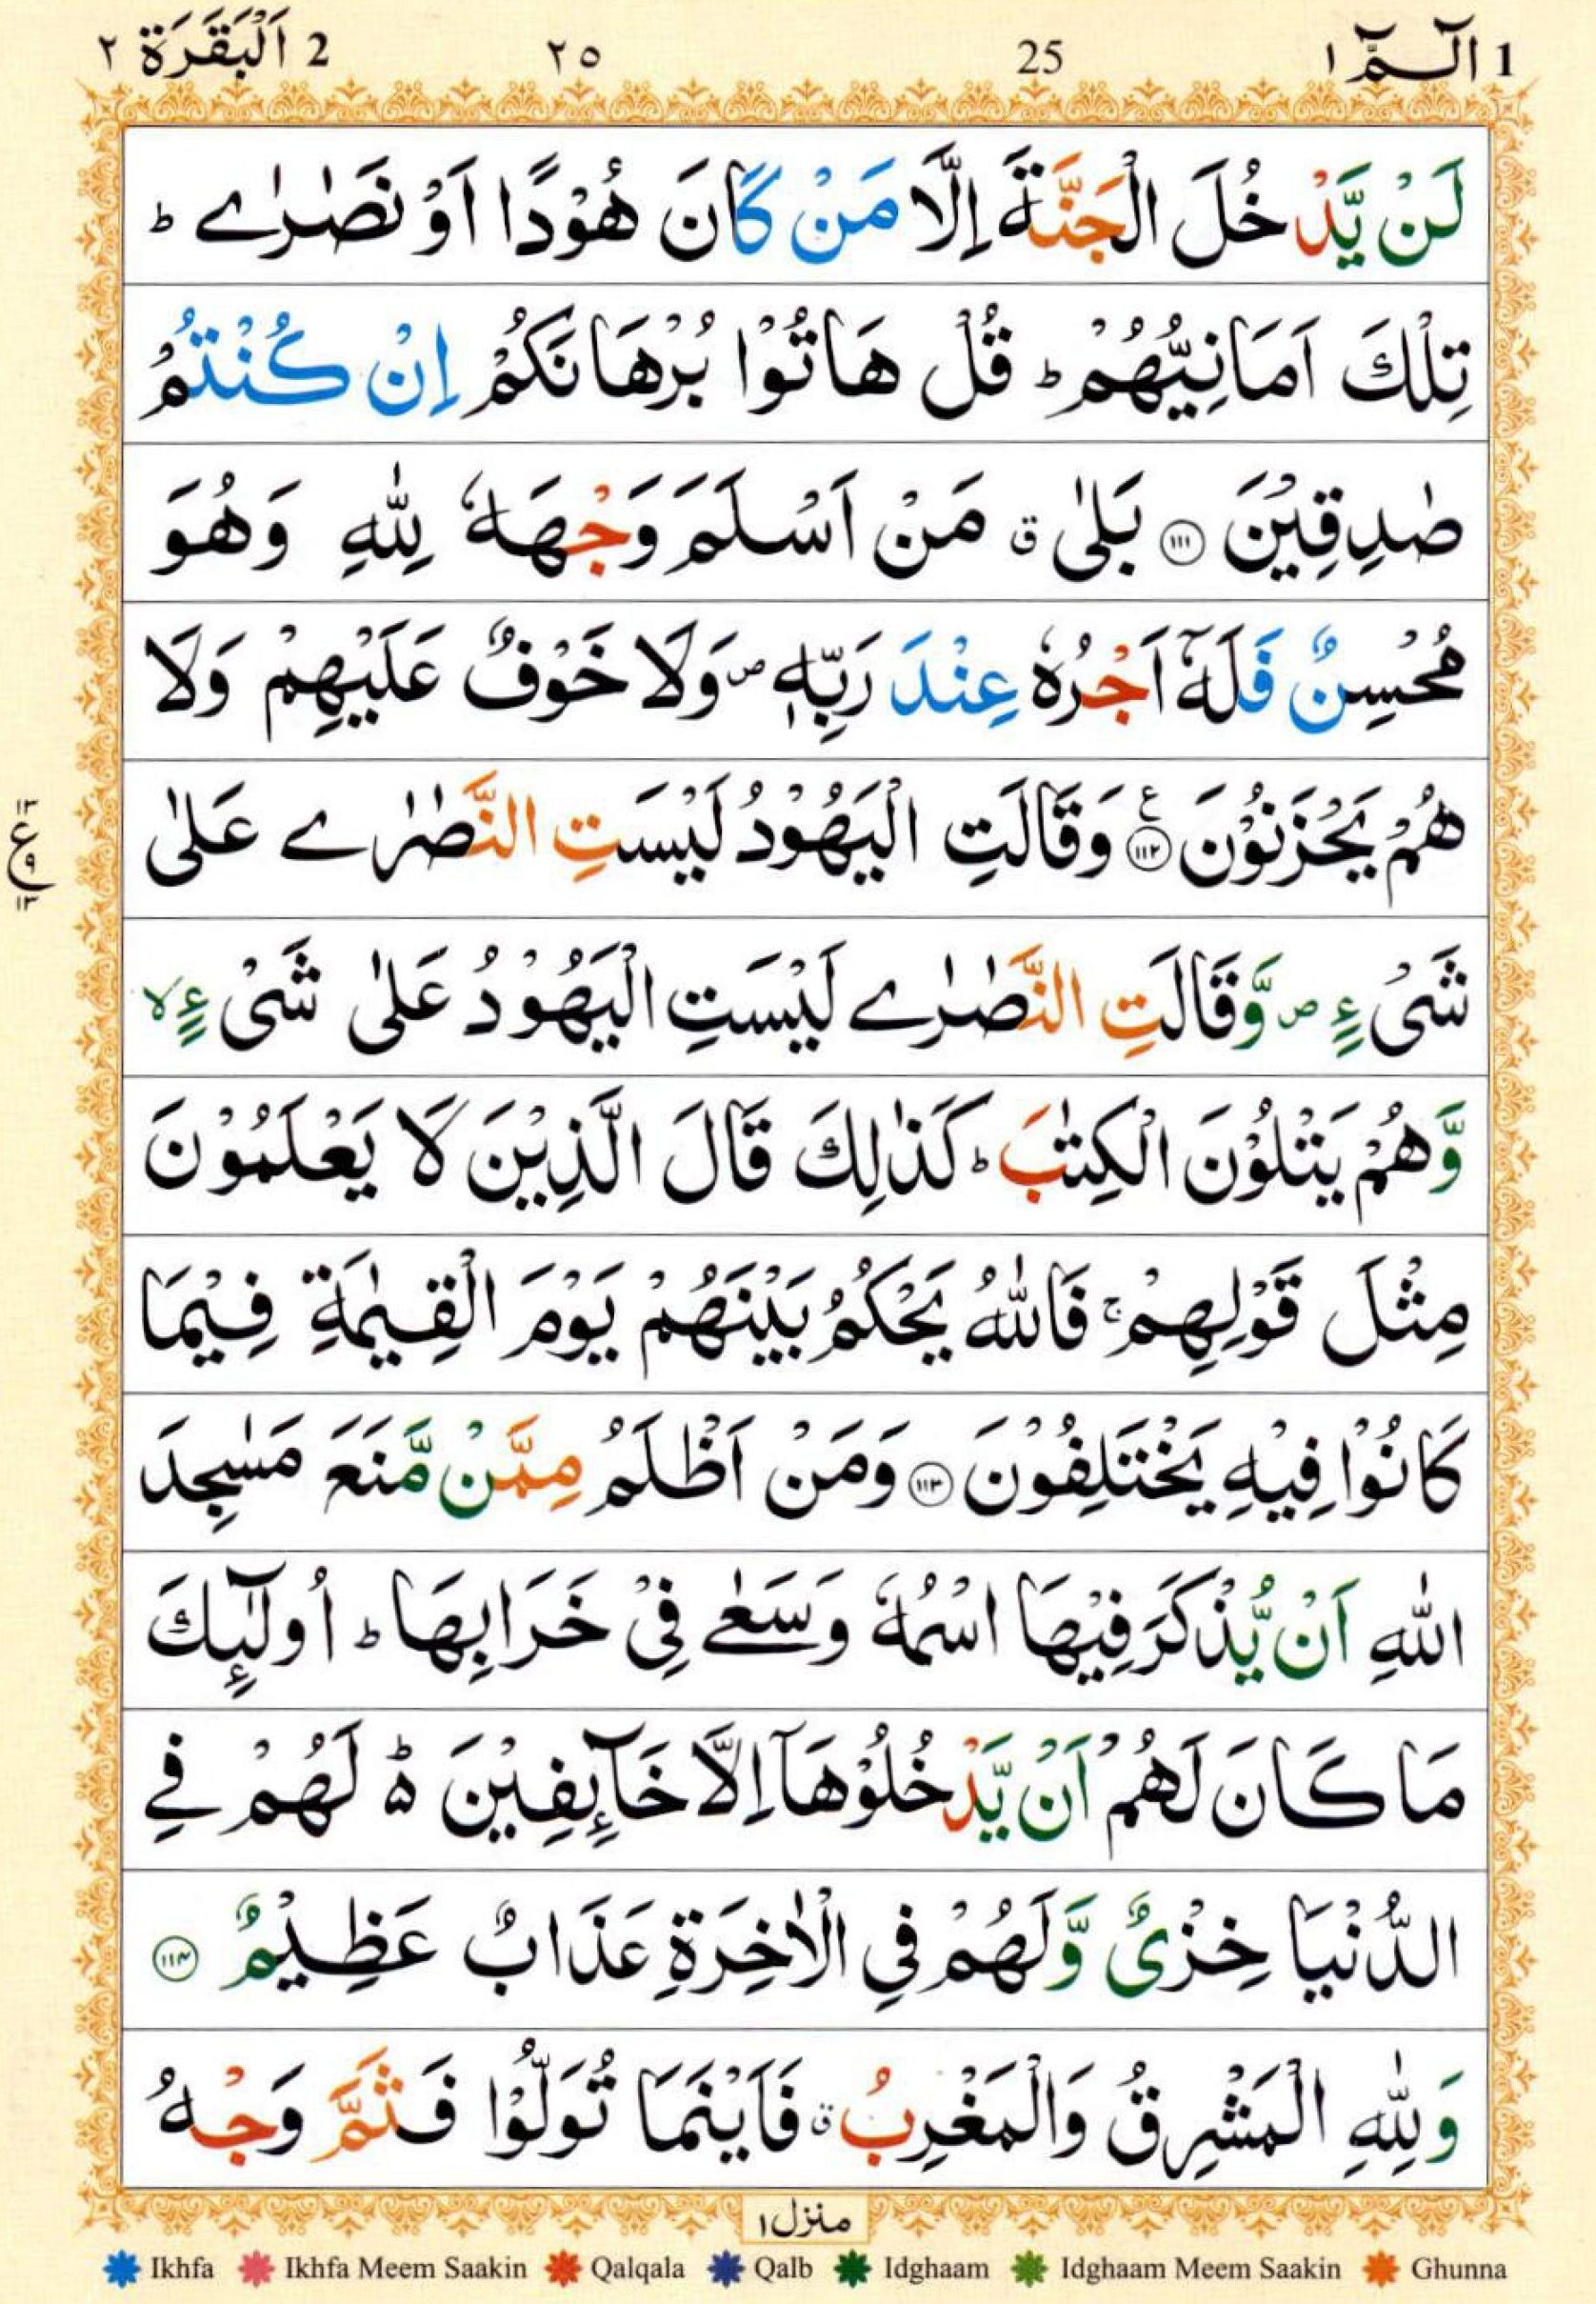 1 الٓمّٓ ١ 25 ٢٥ 2 اَلْبَقَرَة ٢
لَنْ يَّدْخُلَ الْجَنَّةَ اِلَّا مَنْ كَانَ هُوْدًا اَوْ نَصٰرٰے ؕ
تِلْكَ اَمَانِيُّهُمْ ؕ قُلْ هَاتُوْا بُرْهَانَكُمْ اِنْ كُنْتُمْ
صٰدِقِيْنَ ﴿١١١﴾ بَلٰى ۗ مَنْ اَسْلَمَ وَجْهَهٗ لِلّٰهِ وَهُوَ
مُحْسِنٌ فَلَهٗۤ اَجْرُهٗ عِنْدَ رَبِّهٖ ۪ وَلَا خَوْفٌ عَلَيْهِمْ وَلَا
هُمْ يَحْزَنُوْنَ ﴿١١٢﴾ ع وَقَالَتِ الْيَهُوْدُ لَيْسَتِ النَّصٰرٰے عَلٰى
١٣ ع ٩ ١٣
شَيْءٍ ۪ وَّقَالَتِ النَّصٰرٰے لَيْسَتِ الْيَهُوْدُ عَلٰى شَيْءٍ ۙ
وَّهُمْ يَتْلُوْنَ الْكِتٰبَ ؕ كَذٰلِكَ قَالَ الَّذِيْنَ لَا يَعْلَمُوْنَ
مِثْلَ قَوْلِهِمْ ۚ فَاللّٰهُ يَحْكُمُ بَيْنَهُمْ يَوْمَ الْقِيٰمَةِ فِيْمَا
كَانُوْا فِيْهِ يَخْتَلِفُوْنَ ﴿١١٣﴾ وَمَنْ اَظْلَمُ مِمَّنْ مَّنَعَ مَسٰجِدَ
اللّٰهِ اَنْ يُّذْكَرَ فِيْهَا اسْمُهٗ وَسَعٰے فِيْ خَرَابِهَا ؕ اُولٰٓئِكَ
مَا كَانَ لَهُمْ اَنْ يَّدْخُلُوْهَاۤ اِلَّا خَآئِفِيْنَ ۵ؕ لَهُمْ فِے
الدُّنْيَا خِزْيٌ وَّلَهُمْ فِي الْاٰخِرَةِ عَذَابٌ عَظِيْمٌ ﴿١١٤﴾
وَلِلّٰهِ الْمَشْرِقُ وَالْمَغْرِبُ ۗ فَاَيْنَمَا تُوَلُّوْا فَثَمَّ وَجْهُ
منزل ١
Ikhfa Ikhfa Meem Saakin Qalqala Qalb Idghaam Idghaam Meem Saakin Ghunna